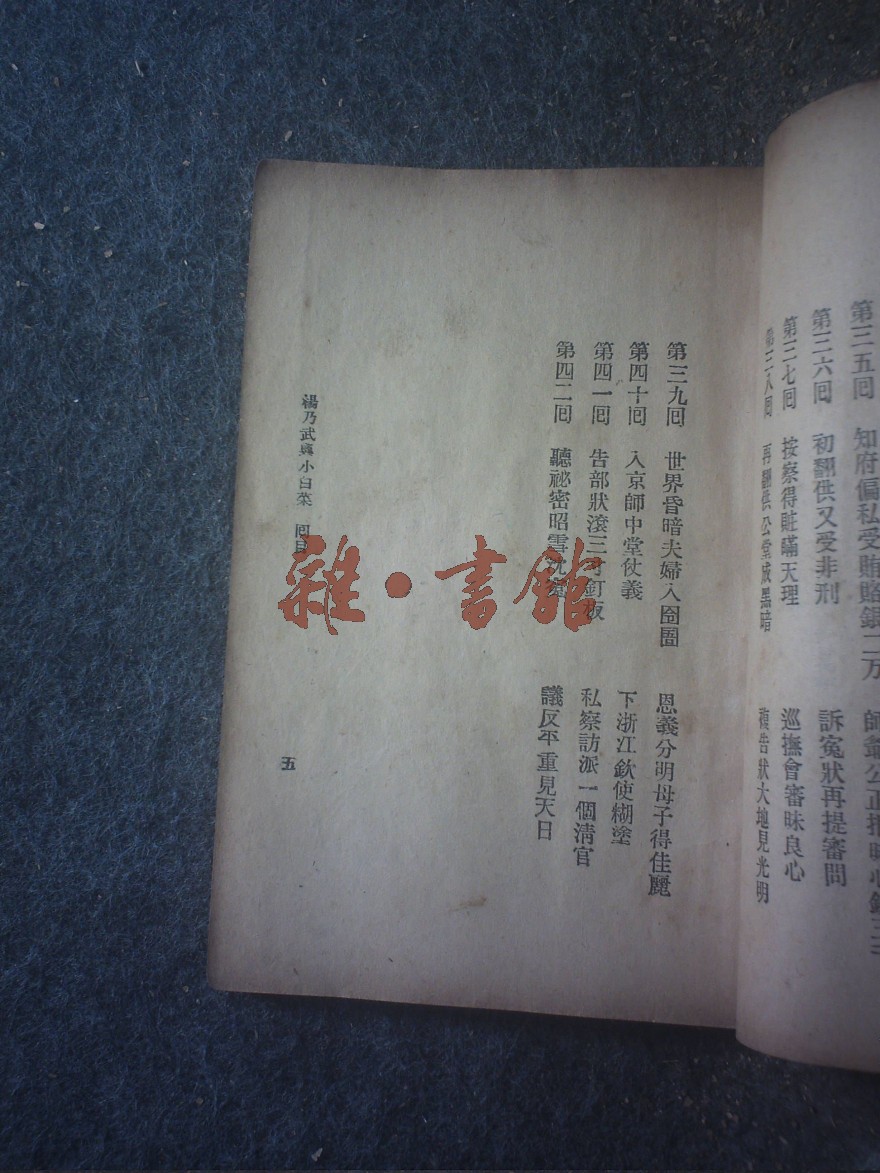 第三五回　知府偏私受賄賂銀二万　師爺公正拒昧心銀三
第三六回　初翻供又受非刑　訴冤狀再提審問
第三七回　按察得賍瞞天理　巡撫會審昧良心
第三八回　再翻供公堂成黑暗　復告狀大地見光明
第三九回　世界昏暗夫婦入囹圄　恩義分明母子得佳麗
第四十回　入京師中堂仗義　下浙江欽使糊塗
第四一回　告部狀滾三寸釘板　私察訪派一個淸官
第四二回　聽祕密昭雪沈寃　議反平重見天日
楊乃武與小白菜　回目
五
雜·書館